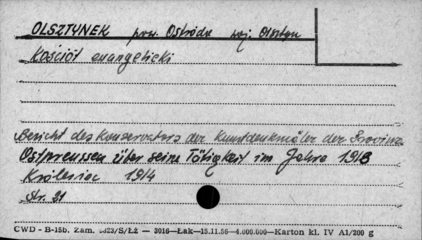 OLSZTYNEK pow. Ostróda woj. Olsztyn
Kościół ewangelicki
Bericht des Konservators der Kunstdenkmäler der Provinz
Ostpreussen über seine Tätigkeit im Jahre 1913
Królewiec 1914
Str. 31
CWD - B-15b. Zam. 0823/S/ŁŻ — 3016—Łak—15.11.56—4.000.000—Karton kl. IV A1/200 g